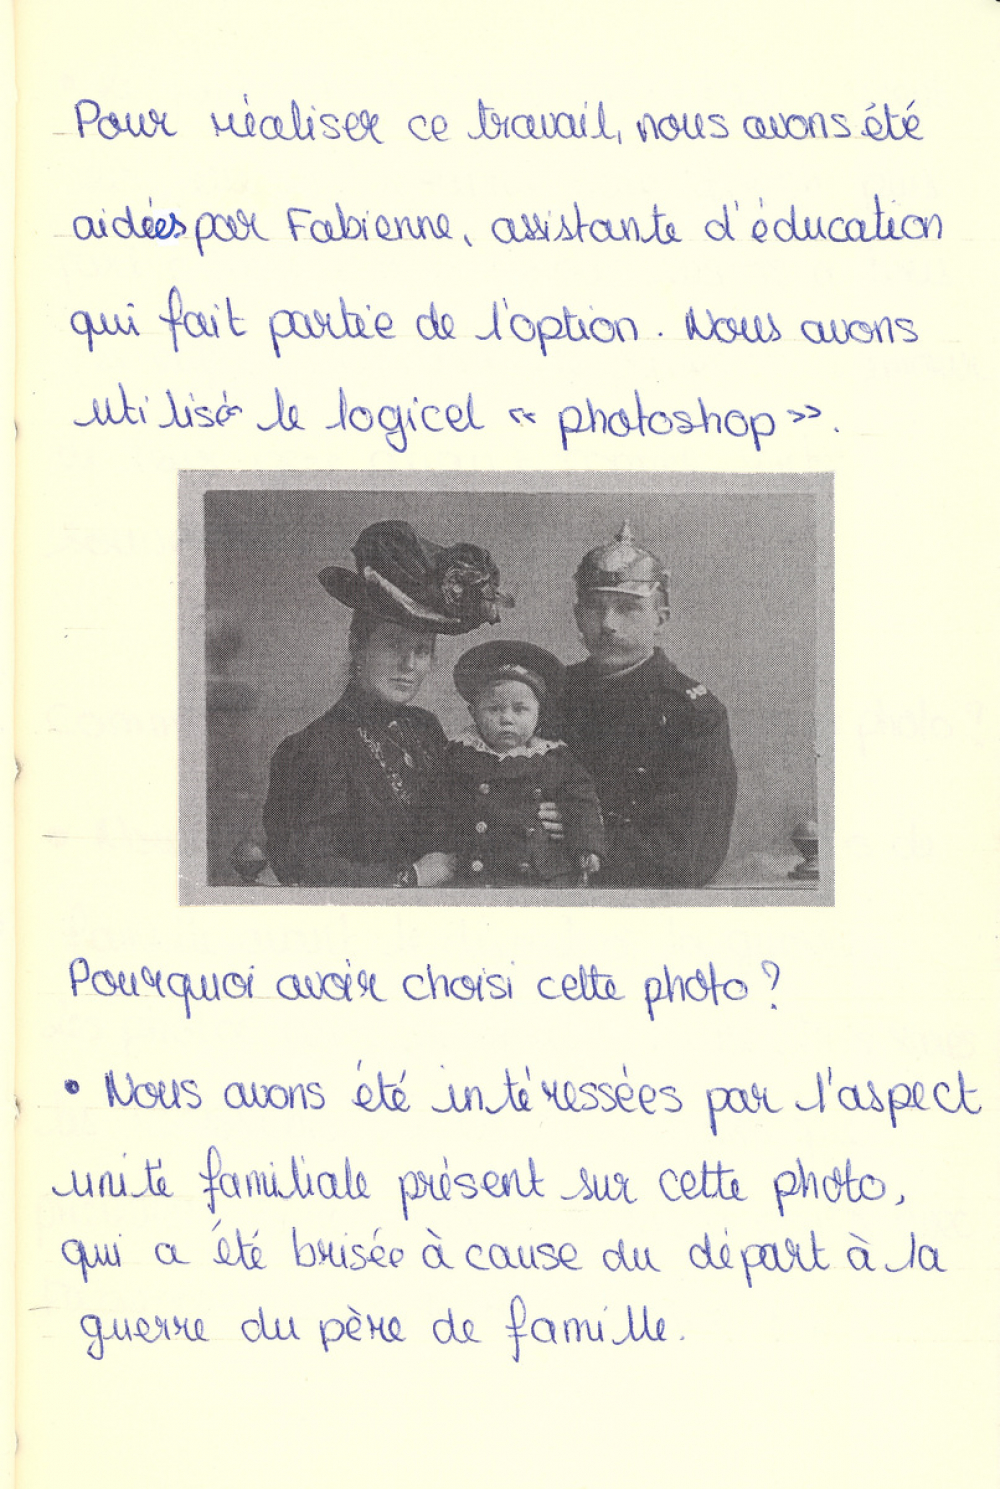 Pour réaliser ce travail, nous avons été
aidées par Fabienne, assistante d'éducation
qui fait partie de l'option. Nous avons
utilisé le logicel « photoshop ».
Pourquoi avoir choisi cette photo ?
• Nous avons été intéressées par l'aspect
unité familiale présent sur cette photo,
qui a été brisée à cause du départ à la
guerre du père de famille.